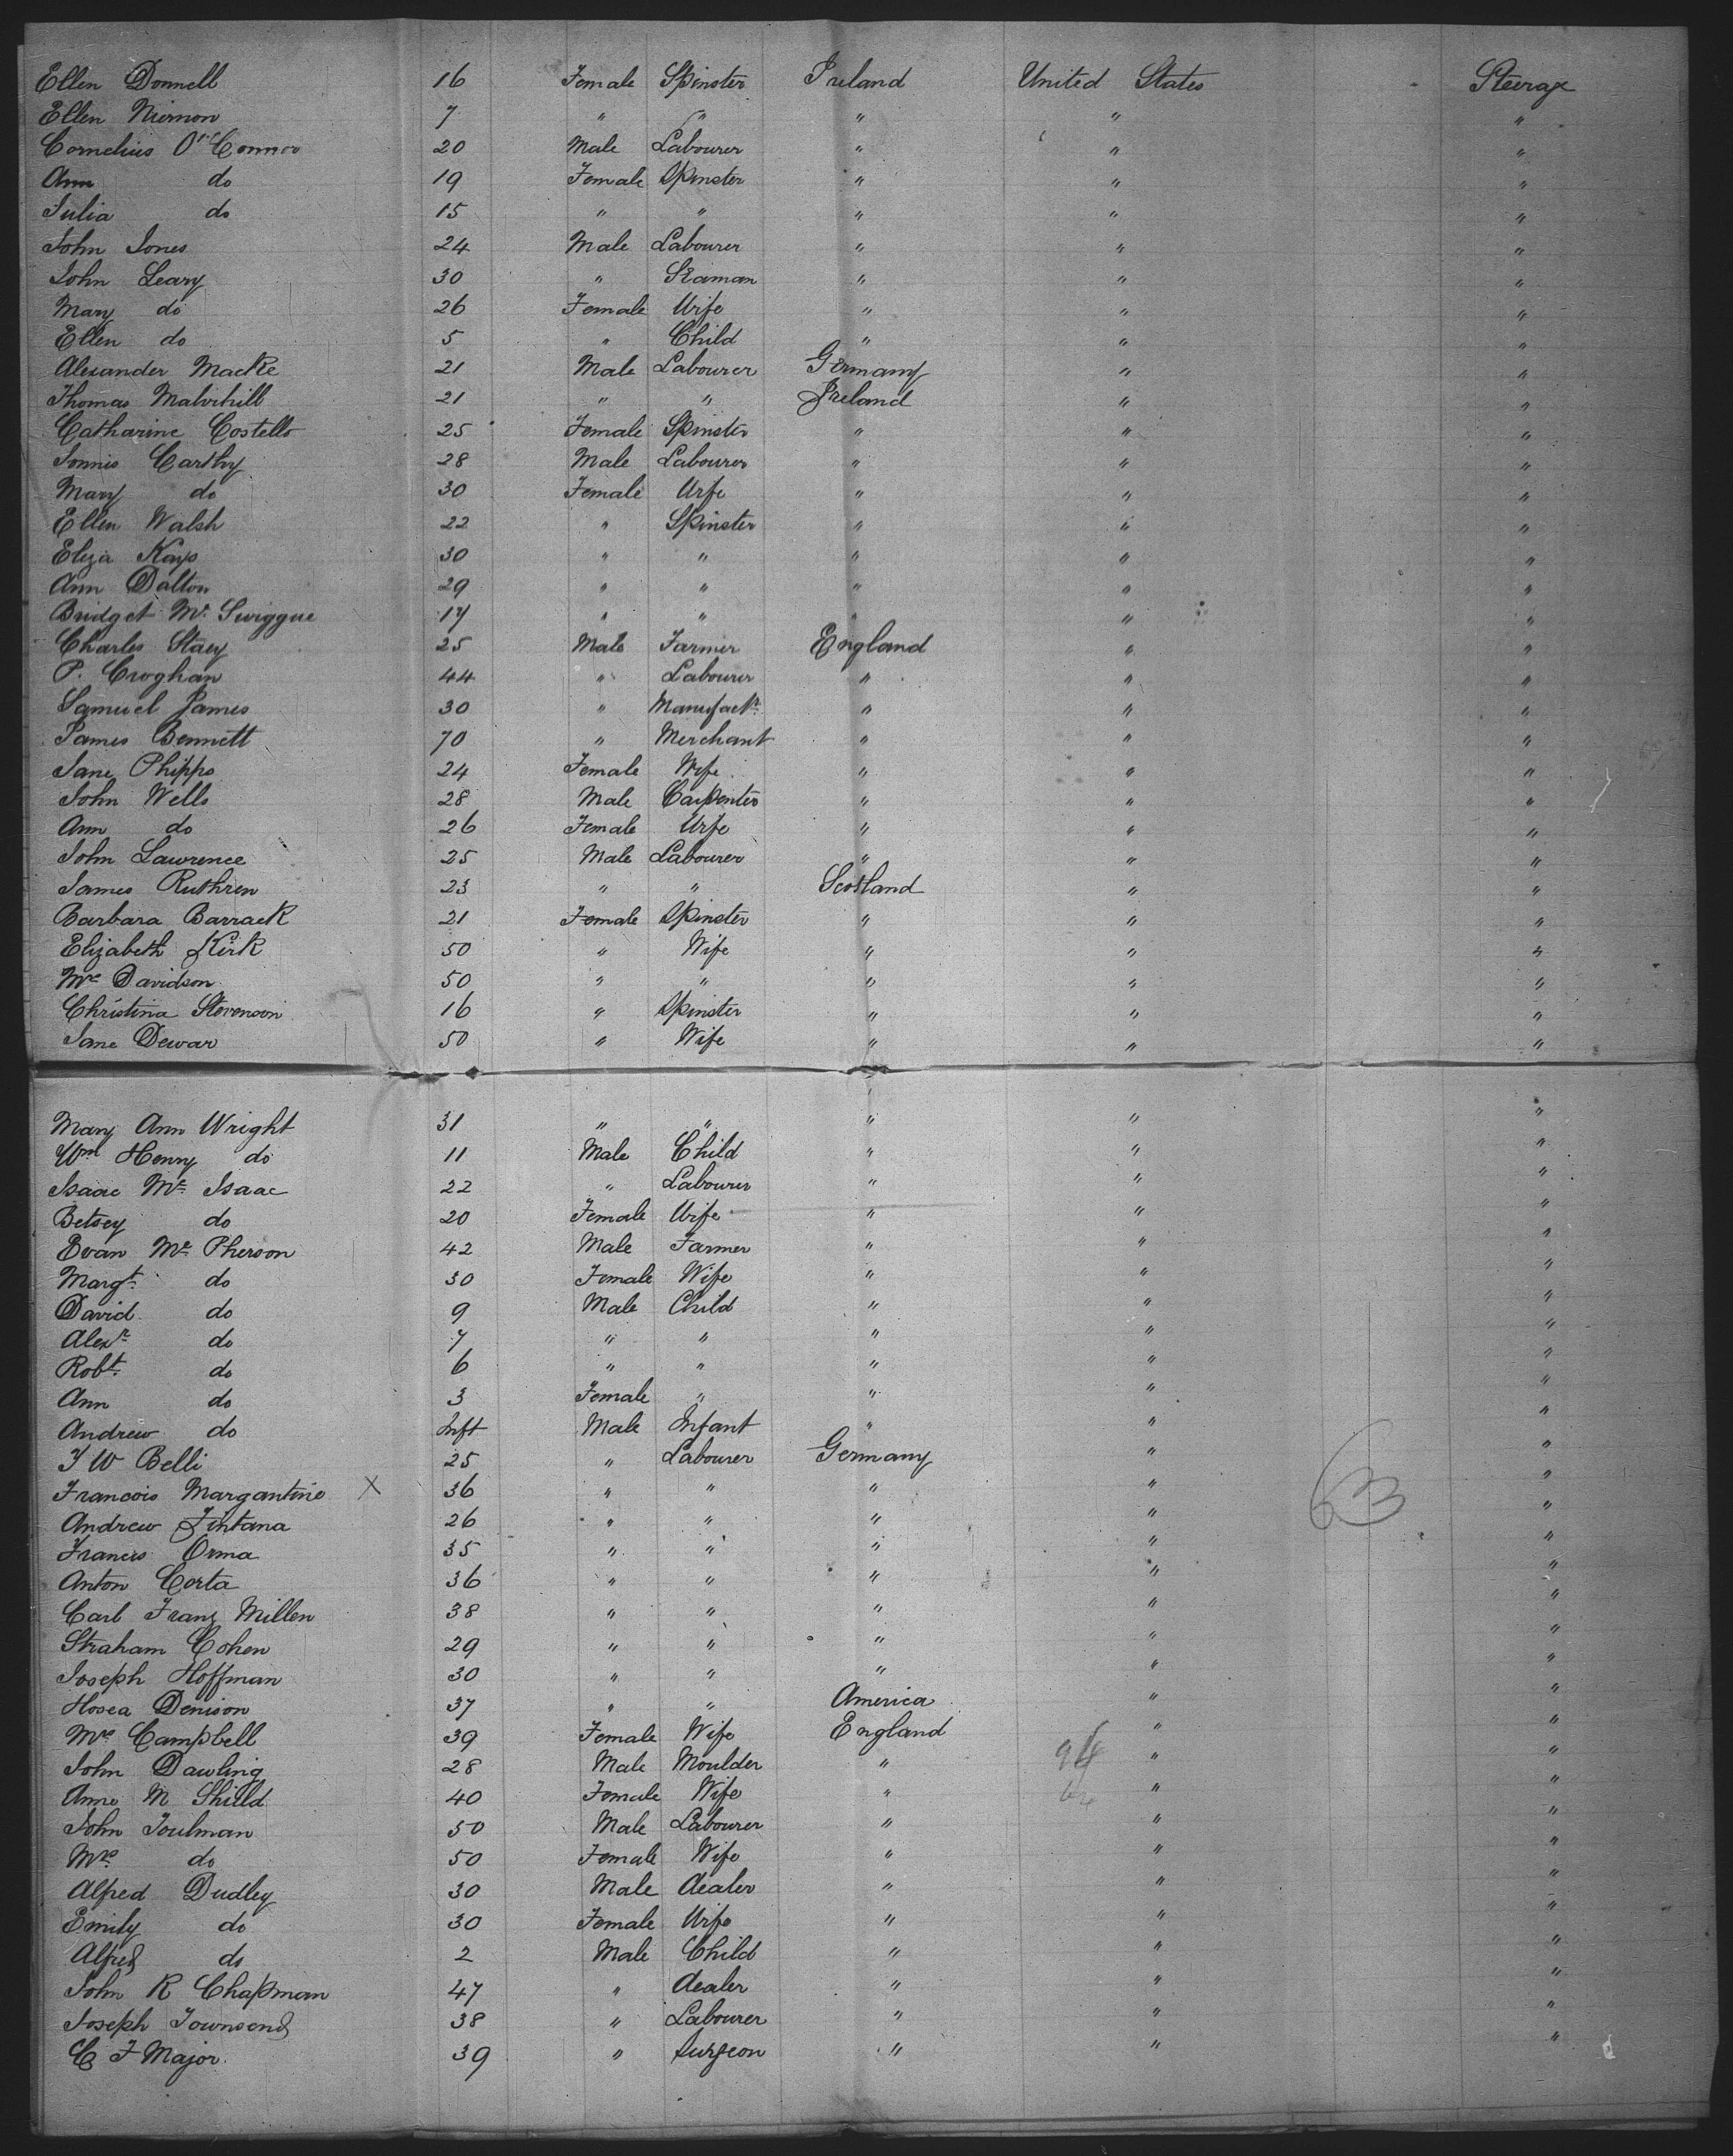 Ellen Donnell 16 Female Spinster Ireland United States Steerage
Ellen Niernon 7 " " " " "
Cornelius O'Connor 20 Male Labourer " " "
Ann do 19 Female Spinster " " "
Julia do 15 " " " " "
John Jones 24 Male Labourer " " "
John Leary 30 " Seaman " " "
Mary do 26 Female Wife " " "
Ellen do 5 " Child " " "
Alexander Macke 21 Male Labourer Germany " "
Thomas Malvihill 21 " " Ireland " "
Catharine Costello 25 Female Spinster " " "
Carthy 28 Male Labourer " " "
Mary do 30 Female Wife " " "
Ellen Walsh 22 " Spinster " " "
Eliza Kays 30 " " " " "
Ann Dalton 29 " " " " "
Bridget Mc Swiggue 17 " " " " "
Charles Stacy 25 Male Farmer England " "
P. Croghan 44 " Labourer " " "
Samuel James 30 " Manufactr. " " "
James Bennett 70 " Merchant " " "
Jane Phipps 24 Female Wife " " "
John Wells 28 Male Carpenter " " "
Ann do 26 Female Wife " " "
John Lawrence 25 Male Labourer " " "
James Ruthren 23 " " Scotland " "
Barbara Barrack 21 Female Spinster " " "
Elizabeth Kirk 50 " Wife " " "
Mrs Davidson 50 " " " " "
Christina Stevenson 16 " Spinster " " "
Jane Dewar 50 " Wife " " "
Mary Ann Wright 31 " " " " "
Wm Henry do 11 Male Child " " "
Isaac Mc Isaac 22 " Labourer " " "
Betsey do 20 Female Wife " " "
Evan Mc Pherson 42 Male Farmer " " "
Margt. do 30 Female Wife " " "
David do 9 Male Child " " "
Alexr. do 7 " " " " "
Robt. do 6 " " " " "
Ann do 3 Female " " " "
Andrew do Inft Male Infant " " "
J W Belli 25 " Labourer Germany " "
Francois Margantine X 36 " " " " "
Andrew Fintana 26 " " " " "
Francis Orma 35 " " " " "
63
Anton Corta 36 " " " " "
Carl Franz Millen 38 " " " " "
Straham Cohen 29 " " " " "
Joseph Hoffman 30 " " " " "
Hosea Denison 37 " " America " "
Mrs Campbell 39 Female Wife England " "
John Dawling 28 Male Moulder " 94 " "
Anne M Shield 40 Female Wife " " "
John Toulman 50 Male Labourer " " "
Mrs. do 50 Female Wife " " "
Alfred Dudley 30 Male dealer " " "
Emily do 30 Female Wife " " "
Alfred do 2 Male Child " " "
John R Chapman 47 " dealer " " "
Joseph Townsend 38 " Labourer " " "
C F Major 39 " Surgeon " " "